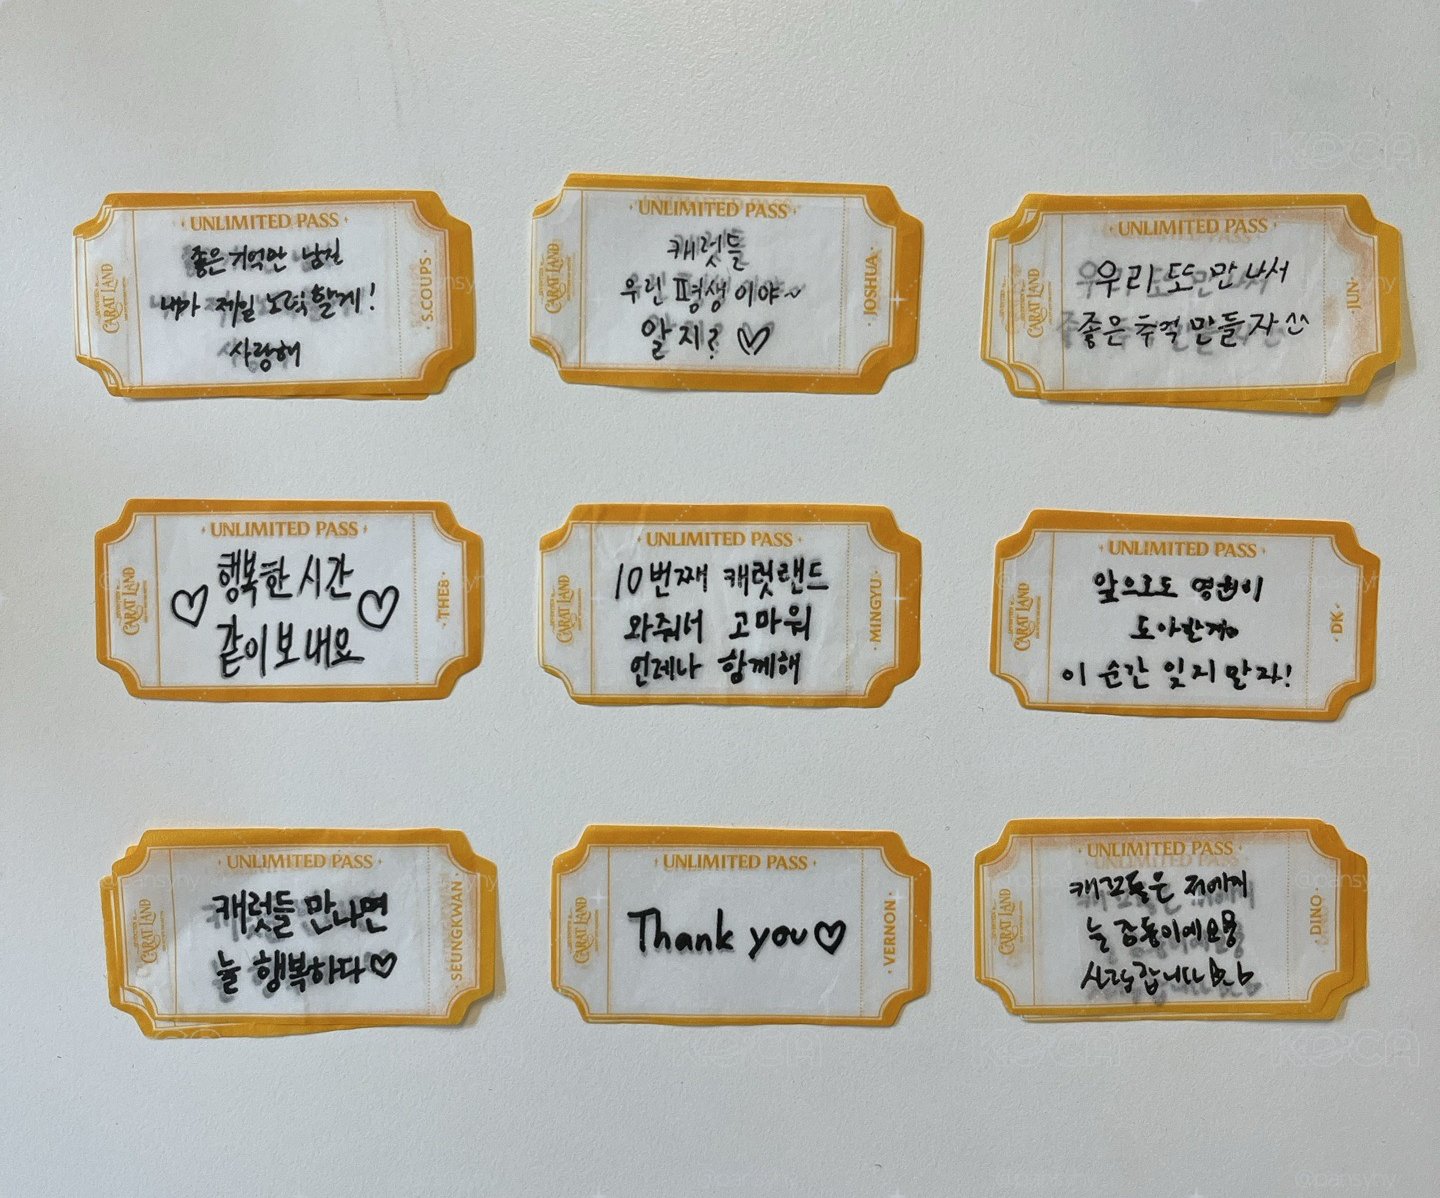 · UNLIMITED PASS ·
좋은 기억만 남길
내가 제일 노력할게!
사랑해
CARAT LAND
· S.COUPS ·
· UNLIMITED PASS ·
캐럿들
우린 평생이야~
알지? ♡
CARAT LAND
· JOSHUA ·
· UNLIMITED PASS ·
우리 또 만나서
좋은 추억 만들자 ^^
CARAT LAND
· JUN ·
· UNLIMITED PASS ·
♡ 행복한 시간 ♡
같이 보내요
CARAT LAND
· THE8 ·
· UNLIMITED PASS ·
10번째 캐럿랜드
와줘서 고마워
언제나 함께해
CARAT LAND
· MINGYU ·
· UNLIMITED PASS ·
앞으로도 영원히
도아한게
이 순간 잊지 말자!
CARAT LAND
· DK ·
· UNLIMITED PASS ·
캐럿들 만나면
늘 행복하다♡
CARAT LAND
· SEUNGKWAN ·
· UNLIMITED PASS ·
Thank you♡
CARAT LAND
· VERNON ·
· UNLIMITED PASS ·
저에게
늘
CARAT LAND
· DINO ·
KOCA
@pansyny